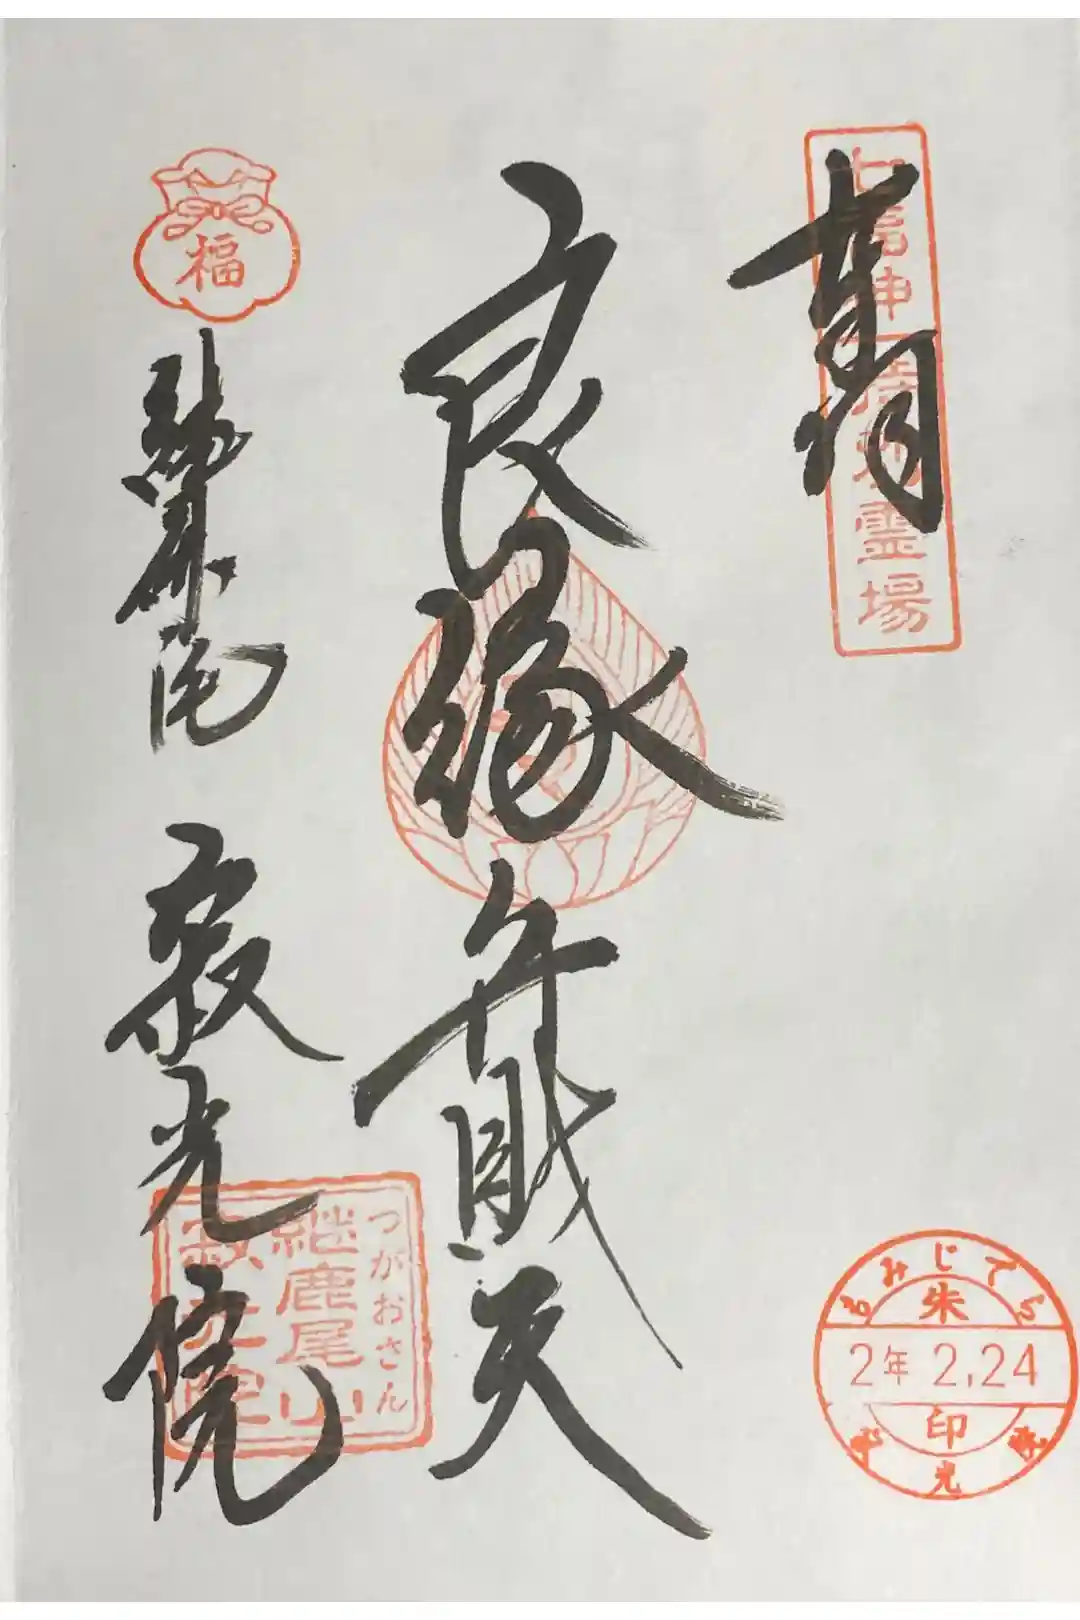 奉拝
七福神
特別霊場
良縁弁財天
福
継鹿尾
寂光院
つがおさん
継鹿尾山
寂光院
もみじでら
朱
2年 2,24
印
寂光院